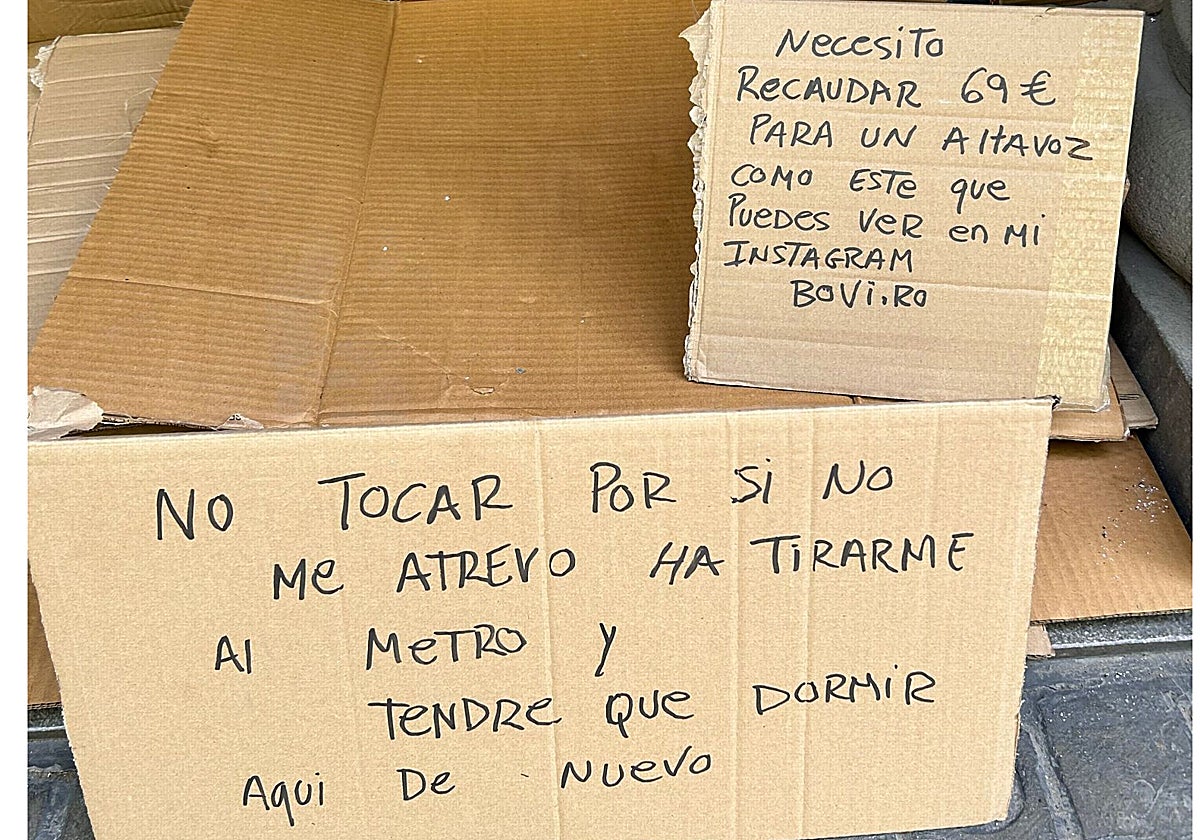 Necesito
RecAUDAR 69€
PARA UN AltAVOZ
COMO ESTe que
PueDes VeR en Mi
INSTAGRAM
BOVi.RO
NO TOCAR POR Si NO
Me ATREVO HA TiRARME
Al MeTRO y
TeNDRe QUe DORMiR
Aqui De NUevo